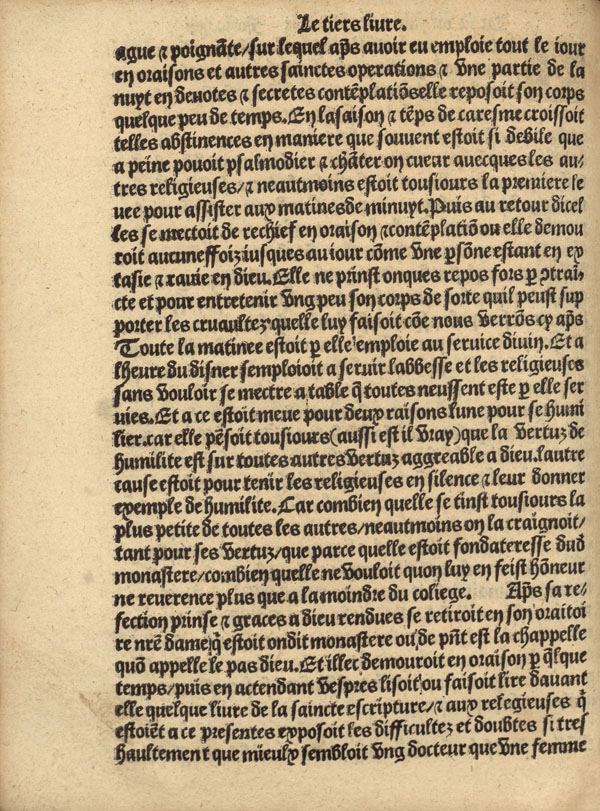 Le tiers liure.
ague ⁊ poignãte/sur lequel ap̃s auoir eu emploie tout le iour
en oraisons et autres sainctes operations ⁊ vne partie de la
nuyt en deuotes ⁊ secretes contẽplatiõs elle reposoit son corps
quelque peu de temps. En la saison ⁊ tẽps de caresme croissoit
telles abstinences en maniere que souuent estoit si debile que
a peine pouoit psalmodier ⁊ chãter on cueur auecques les au/
tres religieuses/⁊ neautmoins estoit tousiours la premiere le
uee pour assister aux matines de minuyt. Puis au retour dicel
les se mectoit de rechief en oraison ⁊ contẽplatiõ ou elle demou
roit aucuneffoiz iusques au iour cõme vne ꝑsõne estant en ex
tasie ⁊ rauie en dieu. Elle ne prinst onques repos fors ꝑ ↄtrai
cte et pour entretenir vng peu son corps de sorte quil peust sup
porter les cruaultez quelle luy faisoit cõe nous verrõs cy ap̃s
Toute la matinee estoit ꝑ elle emploie au seruice diuin. Et a
lheure du disner semploioit a seruir labbesse et les religieuses
sans vouloir se mectre a table q̃ toutes neussent este ꝑ elle ser
uies. Et a ce estoit meue pour deux raisons lune pour se humi
lier. car elle pẽsoit tousiours (aussi est il vray) que la vertuz de
humilite est sur toutes autres vertuz aggreable a dieu. lautre
cause estoit pour tenir les religieuses en silence ⁊ leur donner
exemple de humilite. Car combien quelle se tinst tousiours la
plus petite de toutes les autres/neautmoins on la craignoit/
tant pour ses vertuz/que parce quelle estoit fondateresse dud̃
monastere/combien quelle ne vouloit quon luy en feist hõneur
ne reuerence plus que a la moindre du coliege. Ap̃s sa re/
fection prinse ⁊ graces a dieu rendues se retiroit en son oratoi
re nr̃e dame q̃ estoit ondit monastere ou de p̃nt est la chappelle
quõ appelle le pas dieu. Et illec demouroit en oraison ꝑ q̃lque
temps/puis en actendant vespres lisoit ou faisoit lire dauant
elle quelque liure de la saincte escripture/⁊ aux relegieuses q̃
estoiẽt a ce presentes exposoit les difficultez et doubtes si tres
haultement que mieulx sembloit vng docteur que vne femme